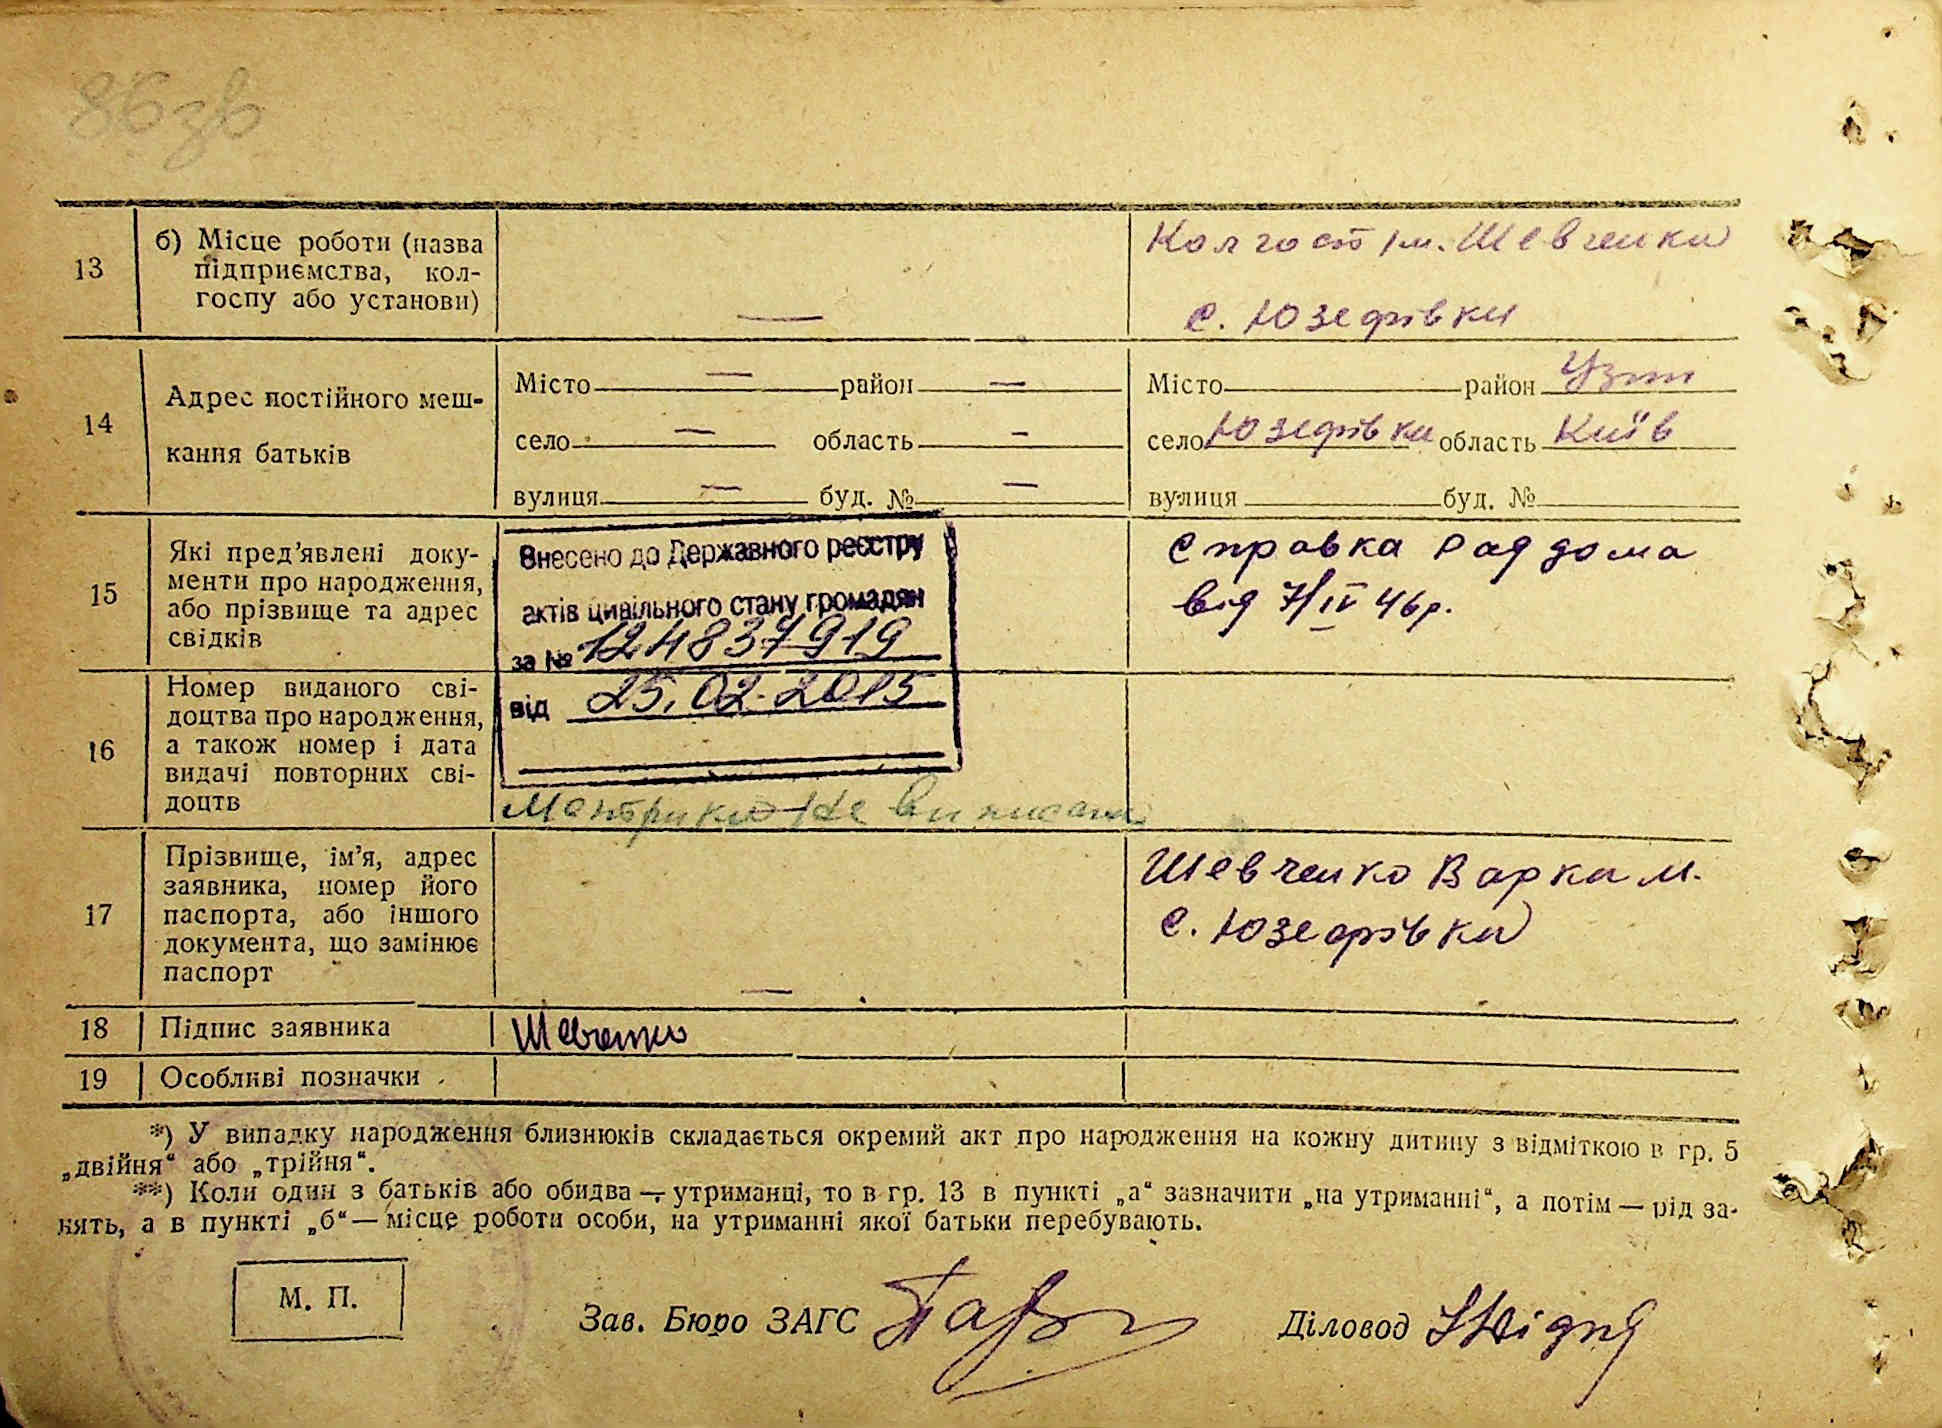 86зв
13
б) Місце роботи (назва
підприємства, кол-
госпу або установи)
—
Колгосп ім. Шевченки
с. Юзефівки
14
Адрес постійного меш-
кання батьків
Місто — район —
село — область —
вулиця — буд. № —
Місто район Узин
село Юзефівки область Київ
вулиця буд. №
15
Які пред’явлені доку-
менти про народження,
або прізвище та адрес
свідків
Внесено до Державного реєстру
актів цивільного стану громадян
за № 124837919
від 25.02.2015
Справка Раддома
від 7/IV 46р.
16
Номер виданого сві-
доцтва про народження,
а також номер і дата
видачі повторних сві-
доцтв
Не виписана
17
Прізвище, ім’я, адрес
заявника, номер його
паспорта, або іншого
документа, що замінює
паспорт
—
Шевченко Варка М.
с. Юзефівки
18
Підпис заявника
Шевченко
19
Особливі позначки
*) У випадку народження близнюків складається окремий акт про народження на кожну дитину з відміткою в гр. 5
„двійня“ або „трійня“.
**) Коли один з батьків або обидва — утриманці, то в гр. 13 в пункті „а“ зазначити „на утриманні“, а потім — рід за-
нять, а в пункті „б“ — місце роботи особи, на утриманні якої батьки перебувають.
М. П.
Зав. Бюро ЗАГС
Діловод